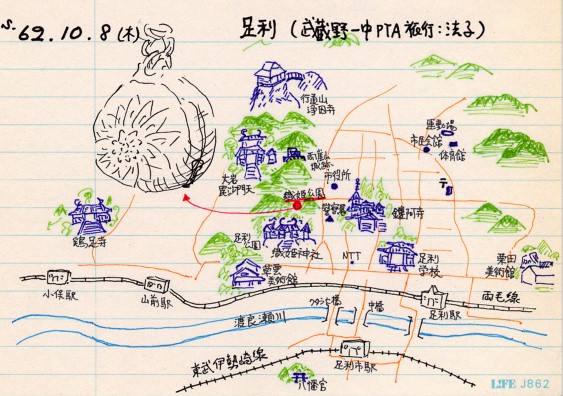 S.62.10.8(木)
足利(武蔵野一中PTA旅行:法子)
行道山
浄因寺
運動場
市民会館
体育館
両崖山
城跡
市役所
大岩
毘沙門天
織姫公園
警察署
鑁阿寺
〒
鶏足寺
足利
公園
織姫神社
足利
学校
NTT
栗田
美術館
草雲
美術館
小俣駅
山前駅
両毛線
中橋
渡良瀬川
足利駅
東武伊勢崎線
足利市駅
八幡宮
LIFE J862